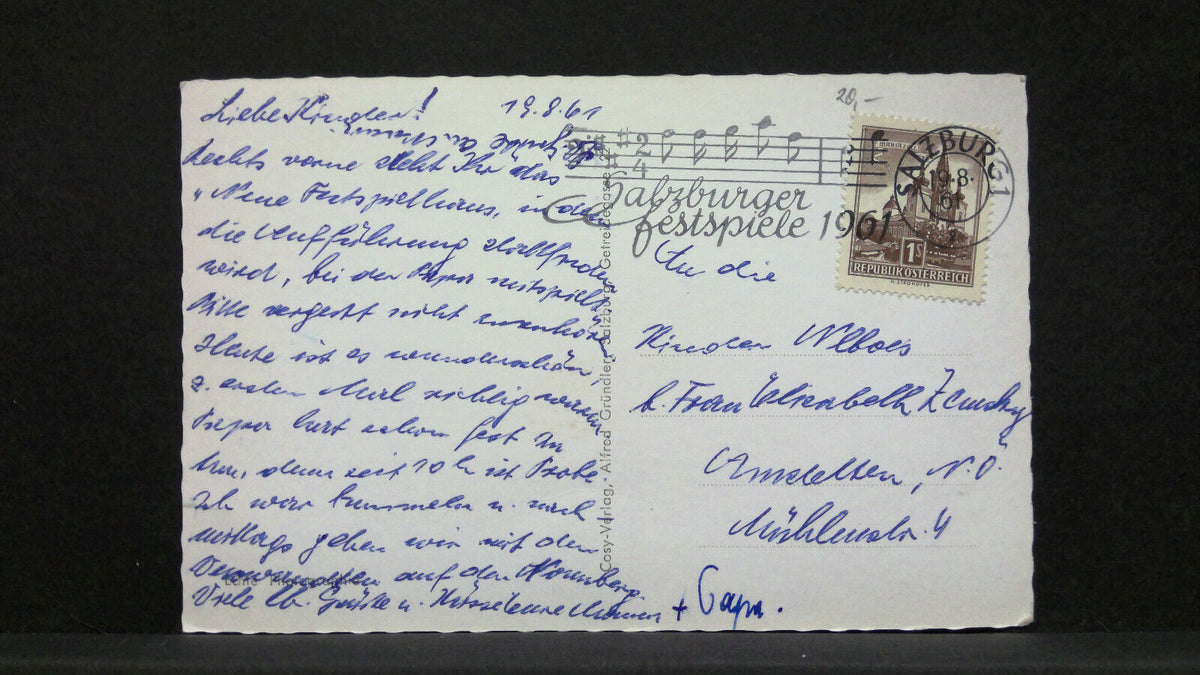 Liebe Kinder! 19.8.61
Rechts vorne steht Ihr das
"Neue Festspielhaus, in dem
die Aufführung stattfinden
wird, bei der Papa mitspielt.
Bitte vergesst nicht
Heute ist es wunderschön,
z. ersten Mal richtig warm
Papa hat schon fest zu
tun, denn seit 10 h ist Probe
Ich war bummeln u. nach
mittags gehen wir mit den
Verwandten auf den Nonnberg.
Viele lb. Grüße u. Küsse Eure Mami + Papa.
Echte Photographie
Cosy-Verlag, Alfred Gründler, Salzburg, Getreidegasse 22
20,-
2
4
Salzburger
festspiele 1961
SALZBURG 1
19.-8.
61
MARIAZELL
1S
REPUBLIK ÖSTERREICH
H. STROHOFER
An die
Kinder
b. Frau
Amstetten, N.Ö.
Mühlenstr. 4